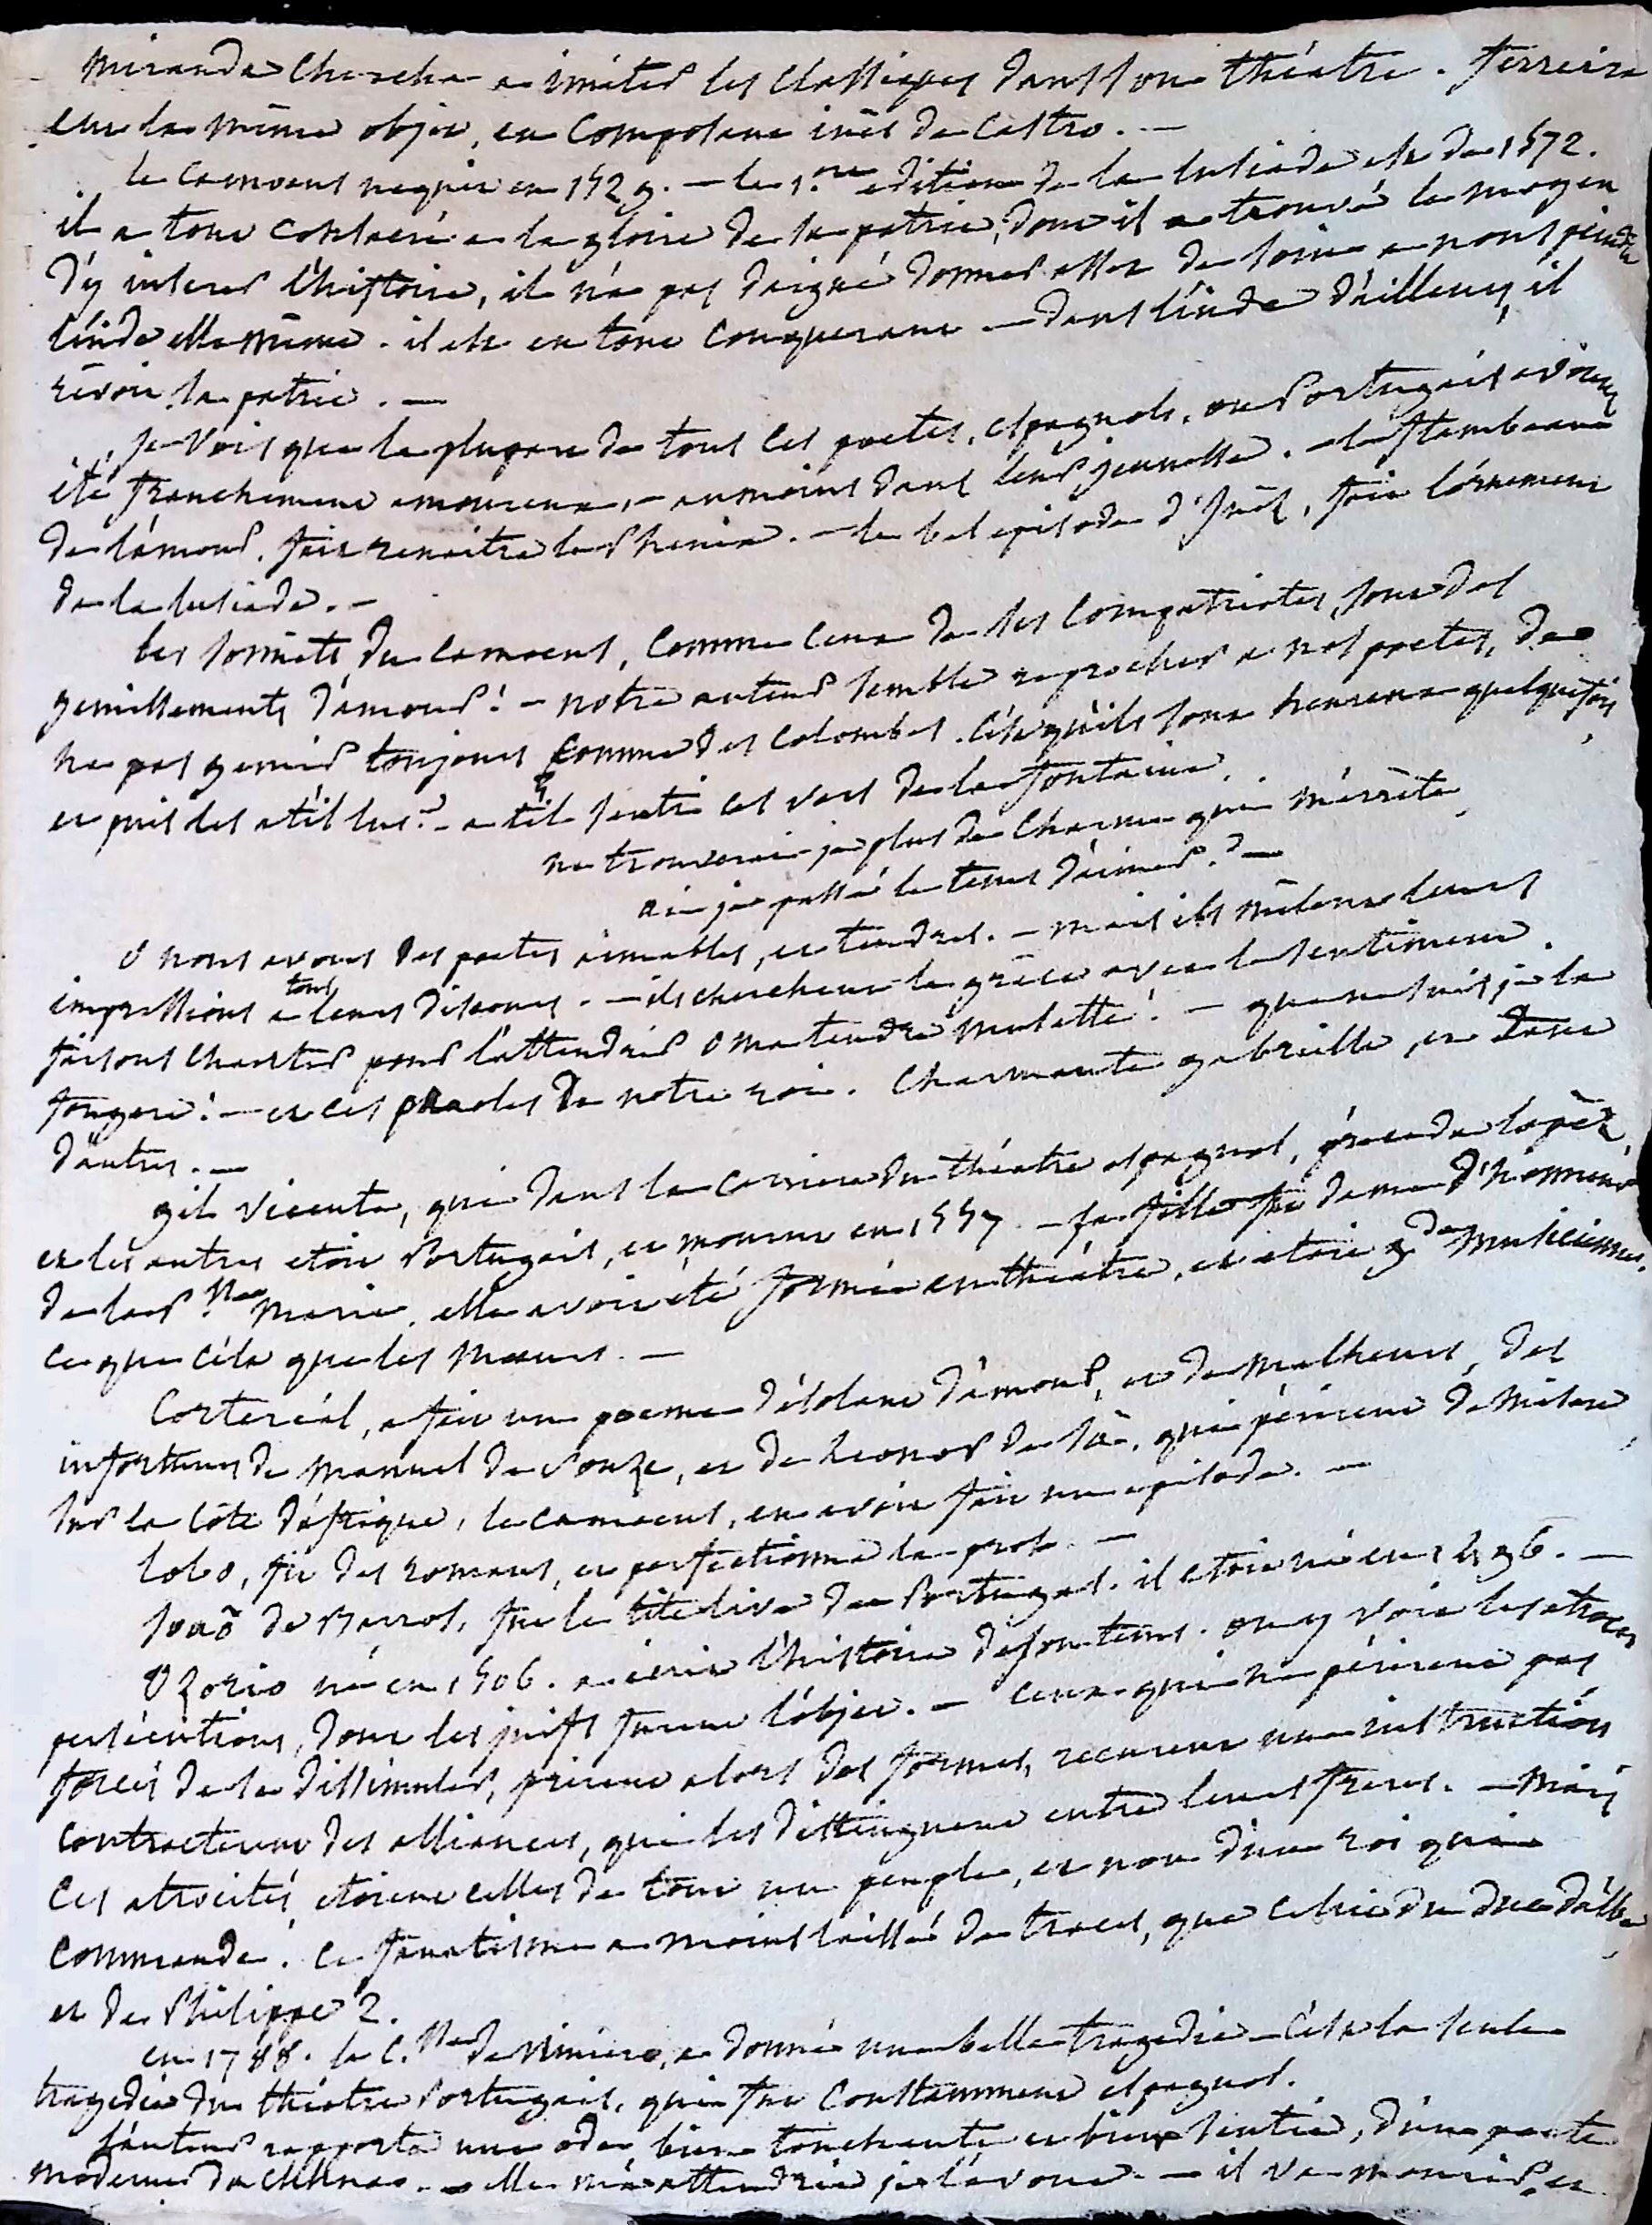 Miranda chercha a imiter les classiques dans son théatre. Ferreira
eut le même objet, en composant inès de Castro. —
le camoens naquit en 1529. — la 1.re edition de la lusiade est de 1572.
il a tout consacré a la gloire de sa patrie, dont il a trouvé le moyen
d'y inserer l'histoire, il n'a pas daigné donner assez de soin a nous peindre
l'inde elle même. il est en tout conquerant — dans l'inde d'ailleurs, il
rêvoit sa patrie. —
je vois que la plupart de tous ces poetes, espagnols, ou Portugais avoient
été franchement amoureux, — au moins dans leur jeunesse. — le flambeau
de l'amour, fait renaitre le Phenix. — le bel episode d'Inès, fait l'ornement
de la lusiade. —
les sonnets du camoens, comme ceux de ses compatriotes, sont des
gemissements d'amour! — notre auteur semble reprocher a nos poetes, de
ne pas gemir toujours comme des colombes. c'est qu'ils sont heureux quelquefois,
et puis les a t'il lus? — a t'il senti ces vers de la fontaine.
ne trouverai je plus de charme qui m'arrête
ai je passé le tems d'aimer? —
o nous avons des poetes aimables, et tendres. — mais ils mêlent leurs
impressions a tous leurs discours. — ils cherchent la grâce avec le sentiment.
faisons chanter pour l'attendrir o ma tendre musette! — que ne suis je la
fougere! — et ces paroles de notre roi. Charmante gabrielle, et tant
d'autres. —
gil vicente, qui dans la carriere du théatre espagnol, précéda lopèz,
et les autres etoit Portugais, et mourut en 1557. — sa fille fut dame d'honneur
de la P.sse Marie, elle avoit été formée au théatre, et etoit g.de musicienne.
ce que c'est que les mœurs. —
Cortereal, a fait un poeme désolant d'amour, et de malheurs, des
infortunes de Manuel de Souze, et de Leonor de Sà, qui périrent de misere
sur la côte d'afrique, le camoens, en avoit fait un episode. —
lobo, fit des romans, et perfectionna la prose. —
Joaõ de Barros, fut le tite live du Portugal. il etoit né en 1496. —
Ozorio né en 1506. a écrit l'histoire de son tems. on y voit les atroces
persécutions, dont les juifs furent l'objet. — ceux qui ne périrent pas
forcés de se dissimuler, prirent alors des formes, recurent une instruction
contracterent des alliances, qui les distinguent entre leurs freres. — mais
ces atrocités etoient celles de tout un peuple, et non d'un roi qui
commande. ce fanatisme a moins laissé de traces, que celui du duc d'albe,
et de Philippe 2.
en 1788. la C.sse de Vimiero, a donné une belle tragedie — c'est la seule
tragedie du théatre Portugais, qui fut constamment espagnol.
l'auteur rapporte une ode bien touchante et bien sentie, d'un poete
moderne — elle m'a attendrie je l'avoue. — il va mourir, et